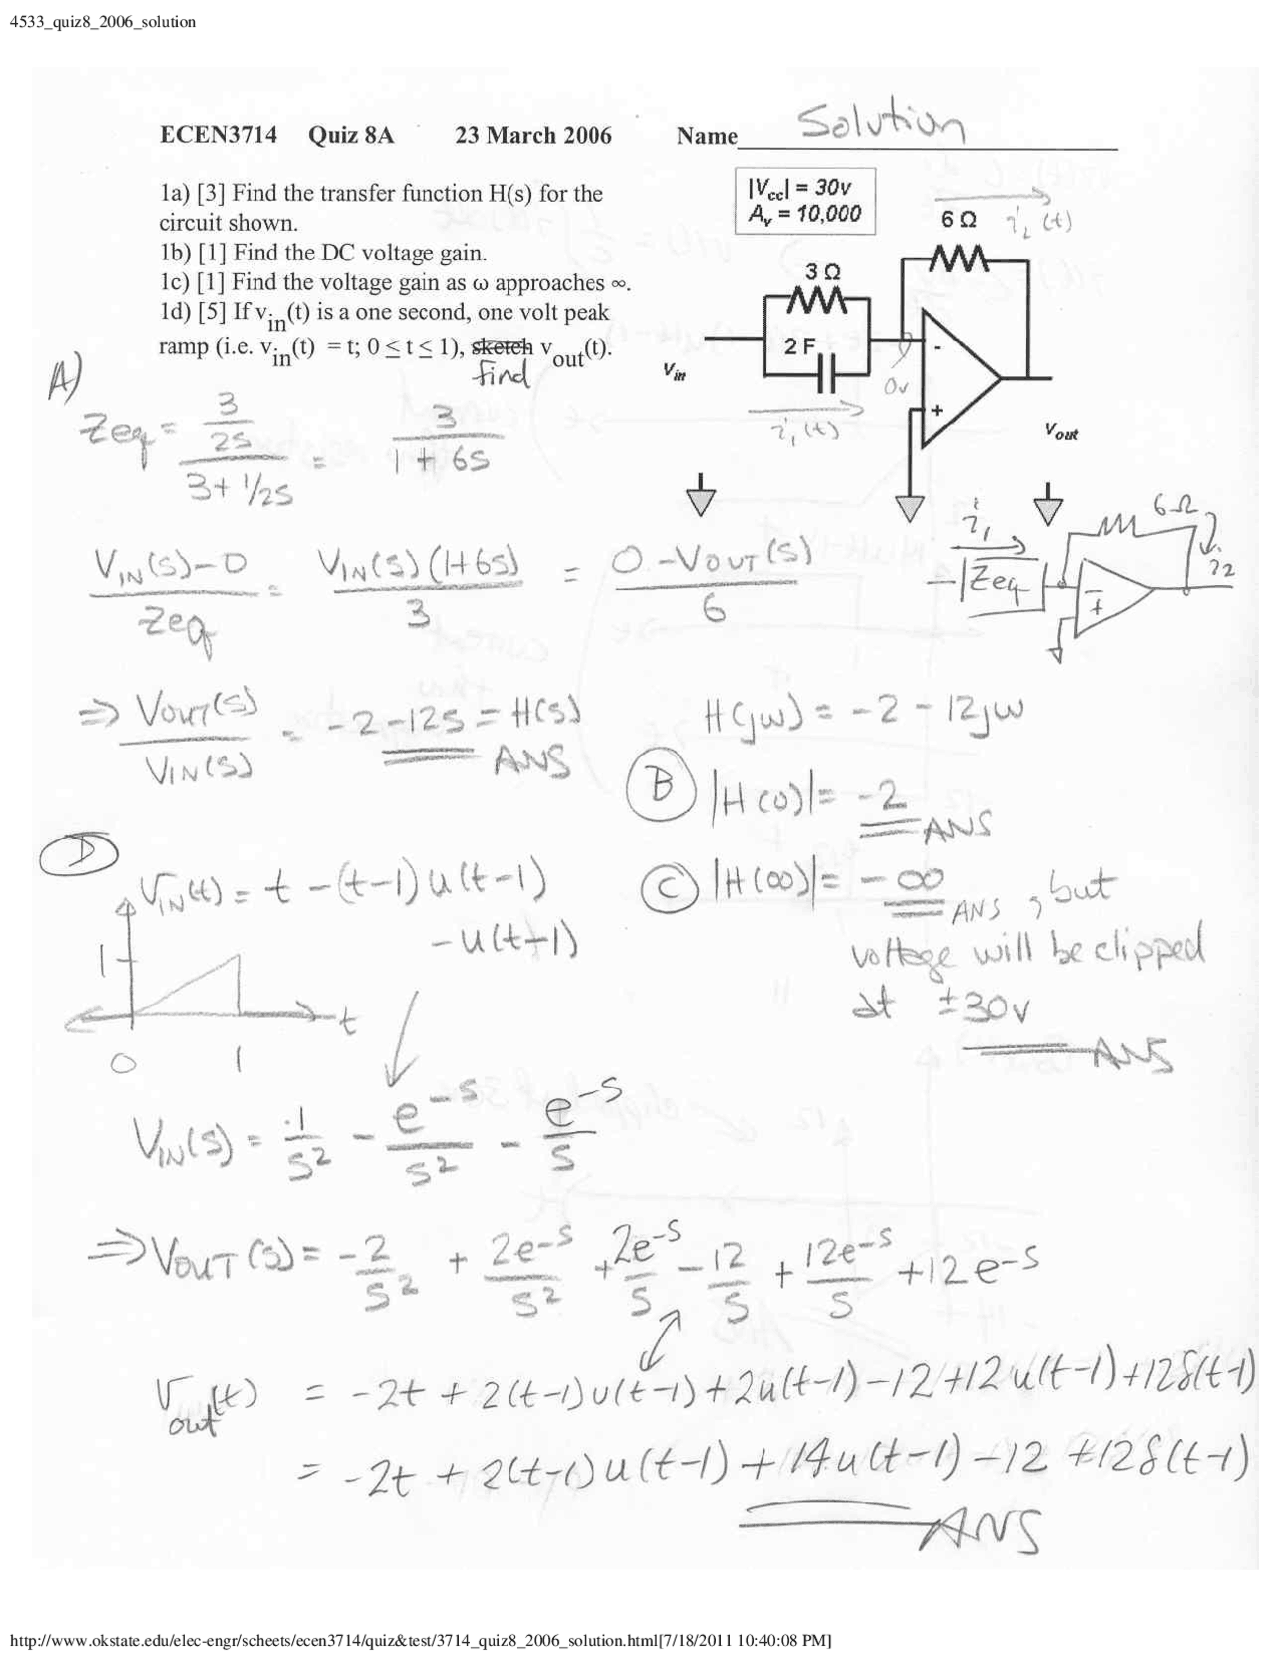 4533_quiz8_2006_solution
ECEN3714 Quiz 8A 23 March 2006 Name Solution
1a) [3] Find the transfer function H(s) for the
circuit shown.
1b) [1] Find the DC voltage gain.
1c) [1] Find the voltage gain as ω approaches ∞.
1d) [5] If v_in(t) is a one second, one volt peak
ramp (i.e. v_in(t) = t; 0 ≤ t ≤ 1), sketch v_out(t).
find
|Vcc| = 30v
Av = 10,000
6 Ω i₂(t)
3 Ω
2 F
-
+
Vin
0v
i₁(t)
Vout
A)
Zeq = (3/2s)/(3 + 1/2s) = 3/(1 + 6s)
i₁ 6Ω
Zeq i₂
-
+
(VIN(s) - 0)/Zeq = VIN(s)(1+6s)/3 = (0 - VOUT(s))/6
⇒ VOUT(s)/VIN(s) = -2 - 12s = H(s)
ANS
H(jω) = -2 - 12jω
B |H(0)| = -2
ANS
C |H(∞)| = -∞ ANS, but
voltage will be clipped
at ±30v
ANS
D
VIN(t) = t - (t-1)u(t-1)
- u(t-1)
1
t
0 1
VIN(s) = 1/s² - e^-s/s² - e^-s/s
⇒ VOUT(s) = -2/s² + 2e^-s/s² + 2e^-s/s - 12/s + 12e^-s/s + 12e^-s
Vout(t) = -2t + 2(t-1)u(t-1) + 2u(t-1) - 12 + 12u(t-1) + 12δ(t-1)
= -2t + 2(t-1)u(t-1) + 14u(t-1) - 12 + 12δ(t-1)
ANS
http://www.okstate.edu/elec-engr/scheets/ecen3714/quiz&test/3714_quiz8_2006_solution.html[7/18/2011 10:40:08 PM]